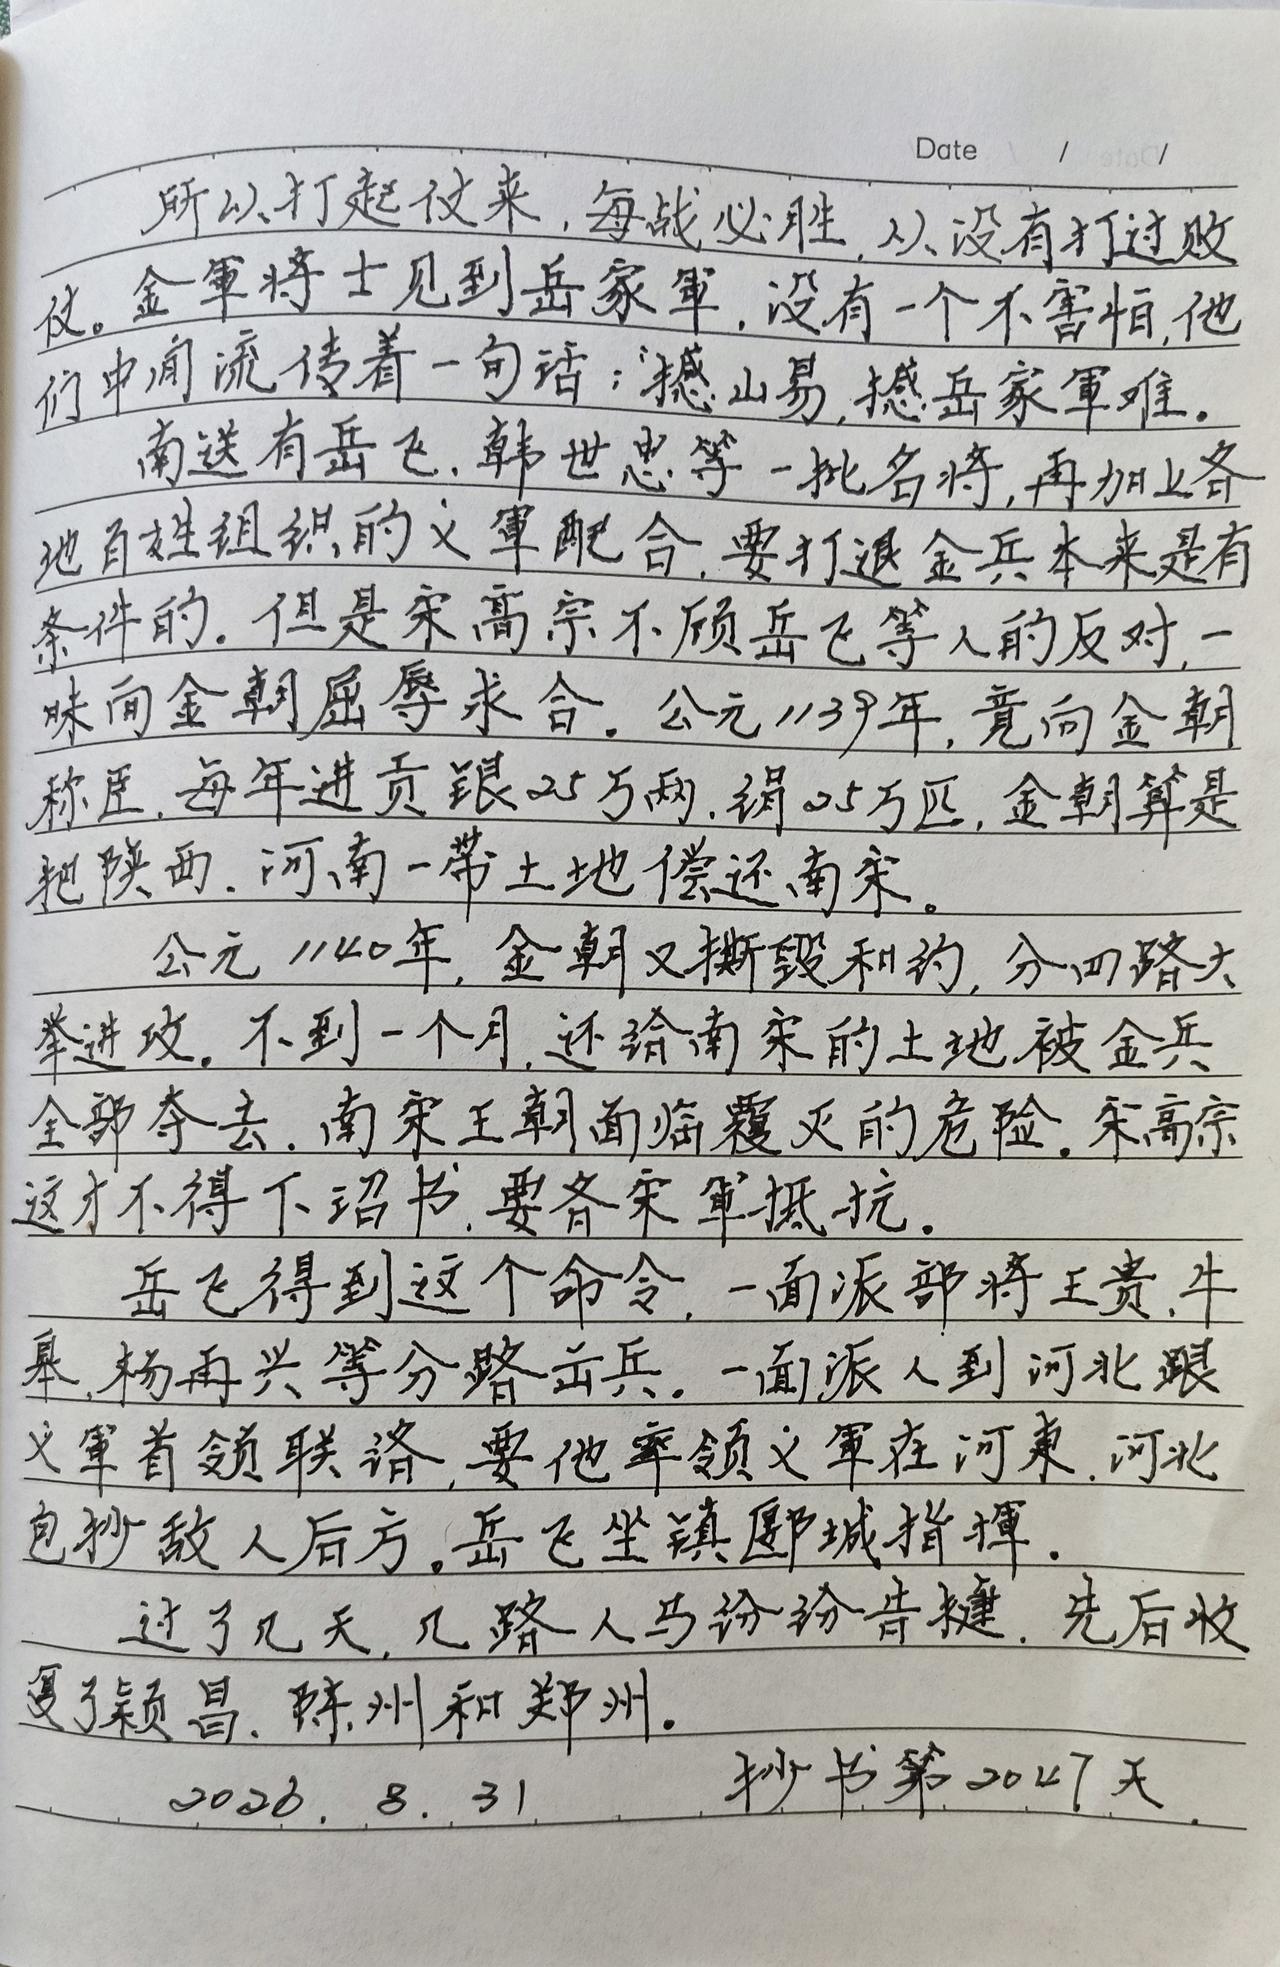 Date / /
所以打起仗来,每战必胜,从没有打过败
仗。金軍将士见到岳家軍,没有一个不害怕,他
们中间流传着一句话:“撼山易,撼岳家軍难。
南送有岳飞、韩世忠等一批名将,再加上各
地百姓组织的义軍配合,要打退金兵本来是有
条件的。但是宋高宗不顾岳飞等人的反对,一
味向金朝屈辱求合。公元1139年,竟向金朝
称臣,每年进贡银25万两,绢25万匹,金朝算是
把陕西、河南一带土地偿还南宋。
公元1140年,金朝又撕毁和约,分四路大
举进攻。不到一个月,还给南宋的土地被金兵
全部夺去,南宋王朝面临覆灭的危险。宋高宗
这才不得下诏书,要各宋軍抵抗。
岳飞得到这个命令,一面派部将王贵、牛
皋、杨再兴等分路击兵。一面派人到河北跟
义軍首领联络,要他率领义軍在河東、河北
包抄敌人后方。岳飞坐镇郾城指揮。
过了几天,几路人马纷纷告捷,先后收
复了颖昌、陈州和郑州。
2026.8.31 抄书第2047天.